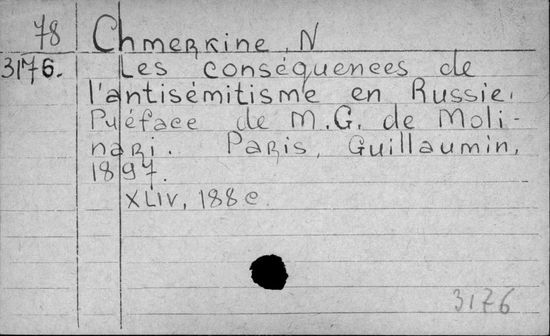 78 Chmerkine, N
3176. Les conséquences de
l'antisémitisme en Russie.
Préface de M.G. de Moli-
nari. Paris, Guillaumin,
1897.
XLIV, 188 c.
3176